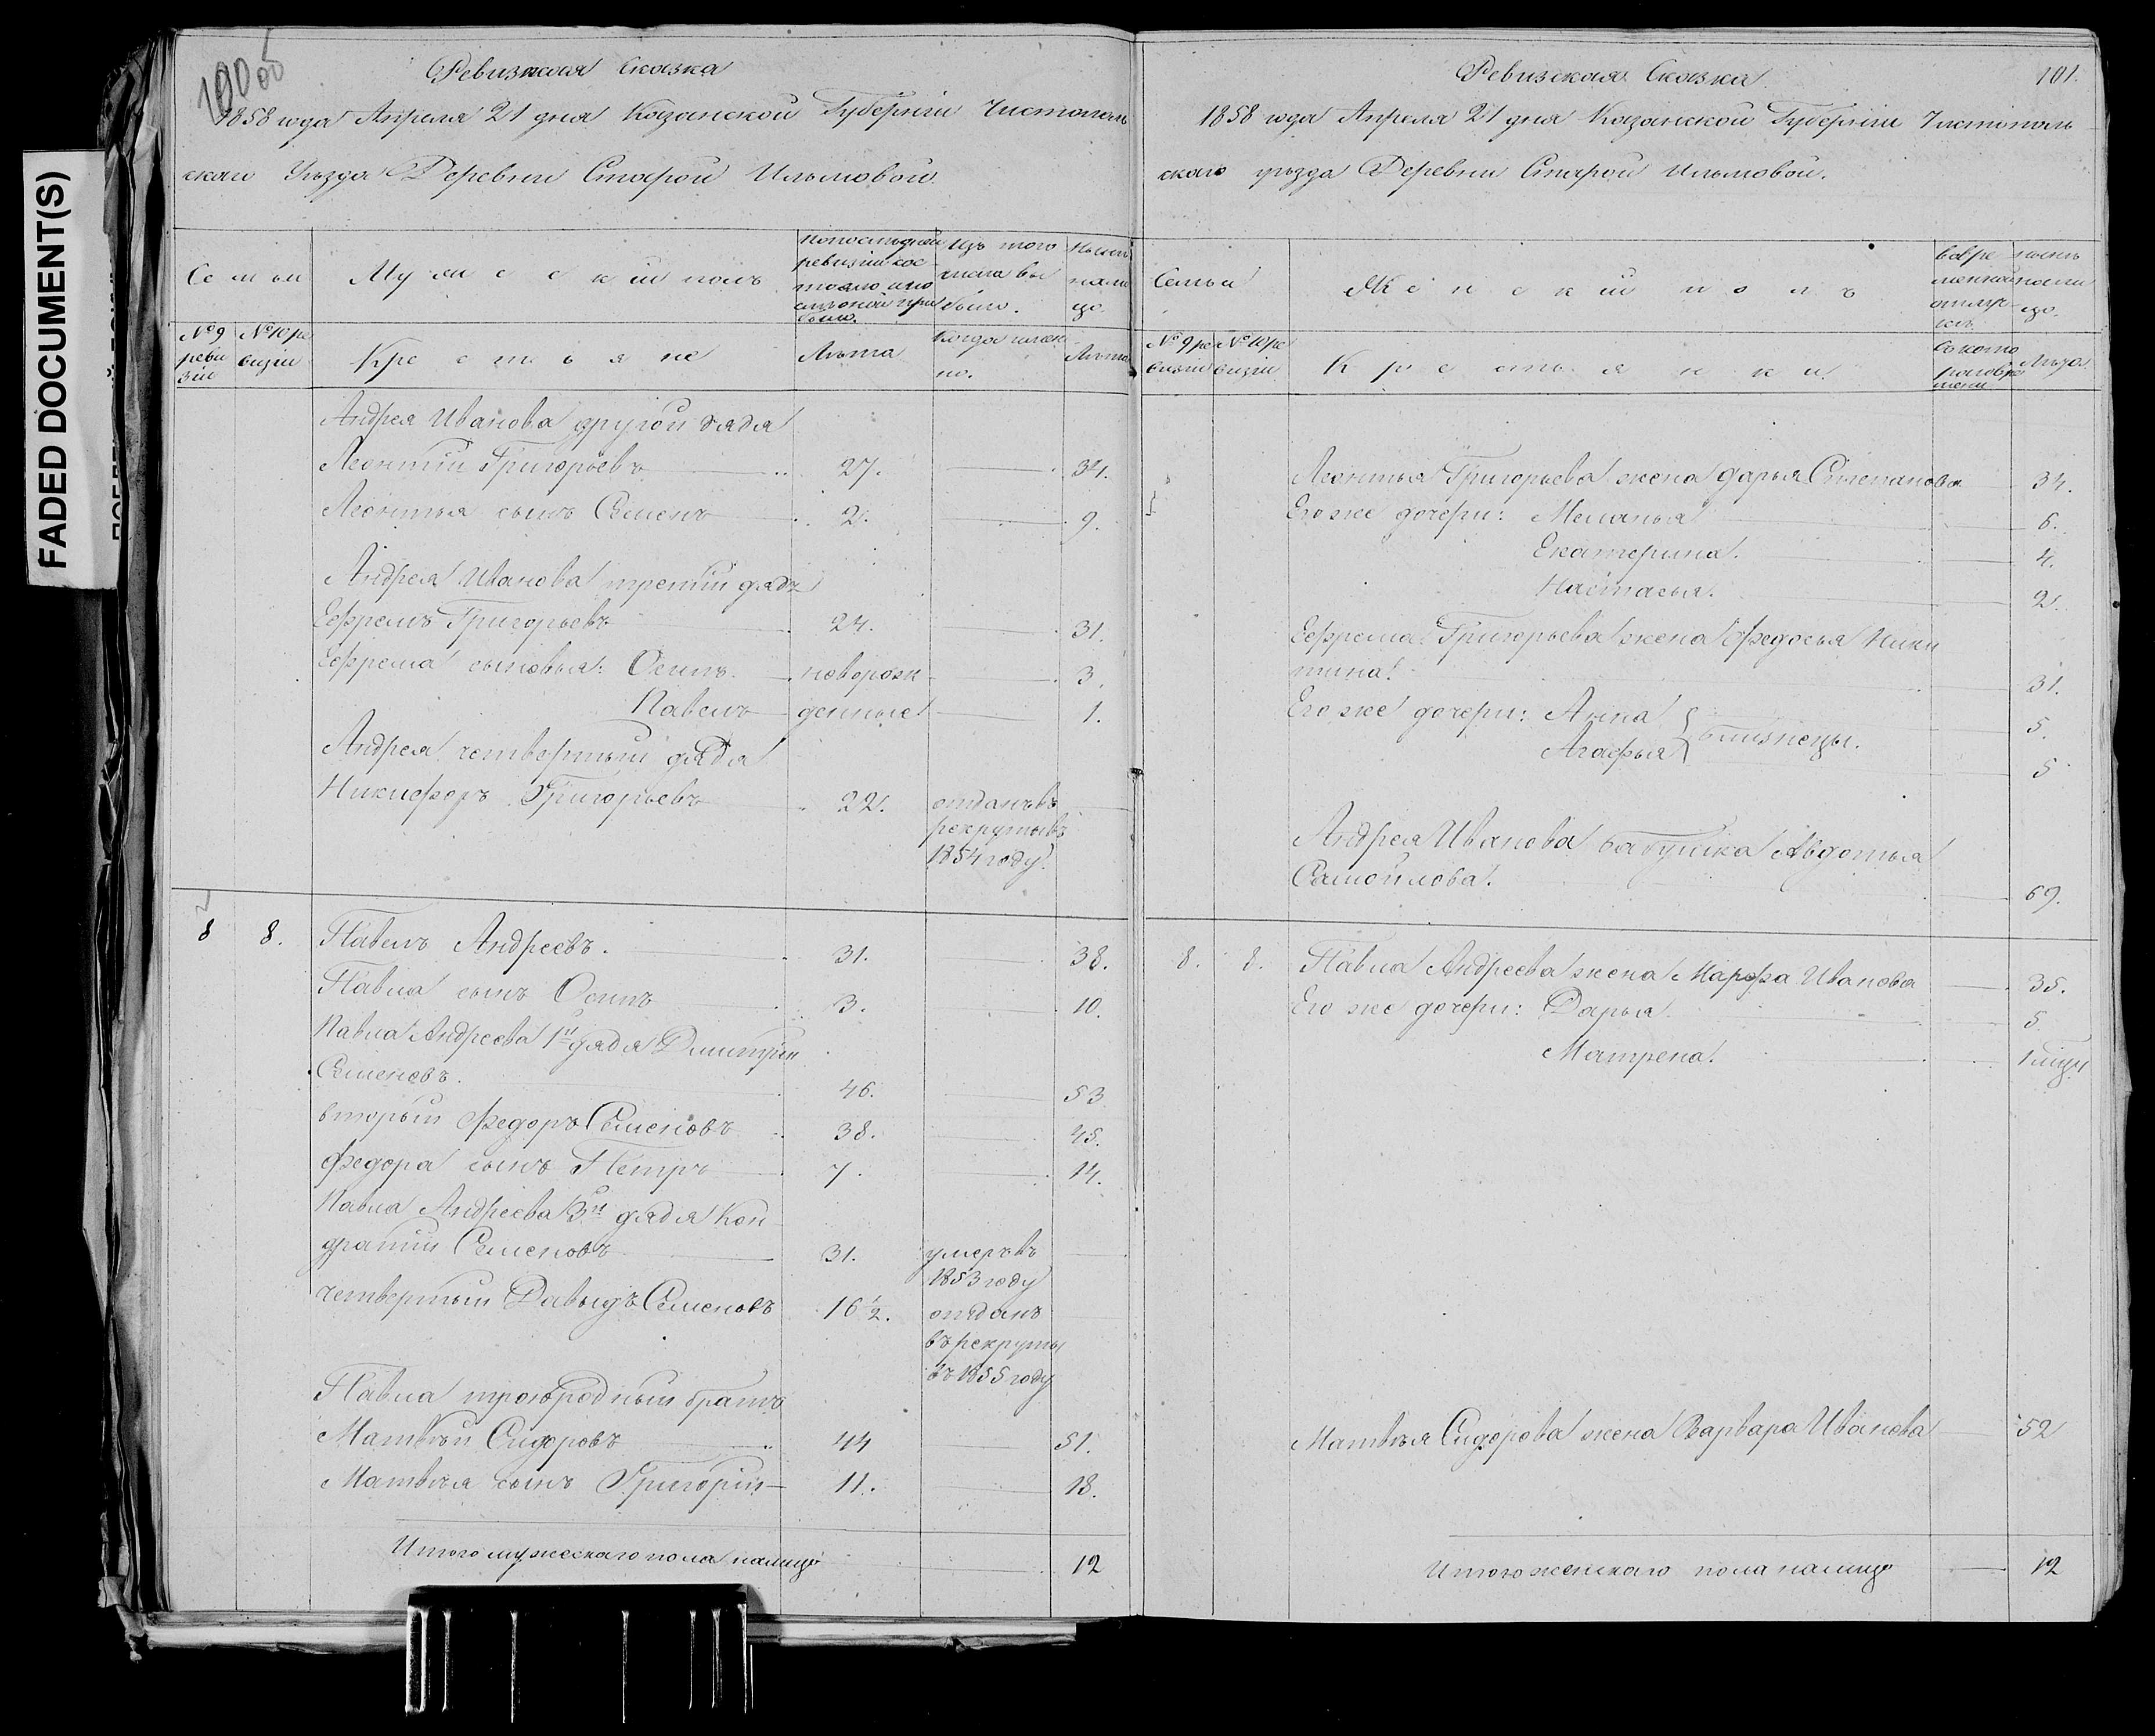 FADED DOCUMENT(S)
100об
Ревизская Сказка
1858 года Апреля 21 дня Казанской Губерніи Чистополь
скаго Уѣзда Деревни Старой Ильмовой.
Семьи
Мужескій полъ
По последней
ревизіи сос
тояло или
послѣ оной при
было.
Изъ того
числа вы
было.
Нынѣ
нали
цо.
№ 9
реви
зіи
№ 10 ре
визіи
Крестьяне
Лѣта
Когда имен
но.
Лѣта
Андрея Иванова другой дядя
Леонтій Григорьевъ 27. 34.
Леонтья сынъ Семенъ 2. 9.
Андрея Иванова третій дядя
Ефремъ Григорьевъ 24. 31.
Ефрема сыновья: Осипъ новорож 3.
Павелъ денные 1.
Андрея четвертый дядя
Никифоръ Григорьевъ 22. отданъ въ
рекруты въ
1854 году.
8 8. Павелъ Андреевъ. 31. 38.
Павла сынъ Осипъ 3. 10.
Павла Андреева 1й дядя Дмитрій
Семеновъ. 46. 53
вторый Федоръ Семеновъ 38. 45.
Федора сынъ Петръ 7. 14.
Павла Андреева 3й дядя Кон
дратій Семеновъ 31. умеръ въ
1853 году
четвертый Давыдъ Семеновъ 16½. отданъ
въ рекруты
въ 1855 году
Павла троюродный братъ
Матвѣй Сидоровъ 44 51.
Матвѣя сынъ Григорій 11. 18.
Итого мужескаго пола налицо 12
Ревизская Сказка 101.
1858 года Апреля 21 дня Казанской Губерніи Чистополь
скаго уѣзда Деревни Старой Ильмовой.
Семьи
Женскій полъ
Во вре
менной
отлу
чкѣ
нынѣ
нали
цо.
№ 9 ре
визіи
№ 10 ре
визіи
Крестьянки
Съ кото
раго вре
мени
Лѣта
Леонтья Григорьева жена Дарья Степанова 34.
Его же дочери: Меланья 6.
Екатерина. 4.
Настасья. 2.
Ефрема Григорьева жена Федосья Ники
тина. 31.
Его же дочери: Анна 5.
близнецы.
Агафья 5
Андрея Иванова бабушка Авдотья
Самойлова. 69.
8. 8. Павла Андреева жена Марфа Иванова 35.
Его же дочери: Дарья 5
Матрена. 1
Матвѣя Сидорова жена Варвара Иванова 52
Итого женскаго пола налицо 12